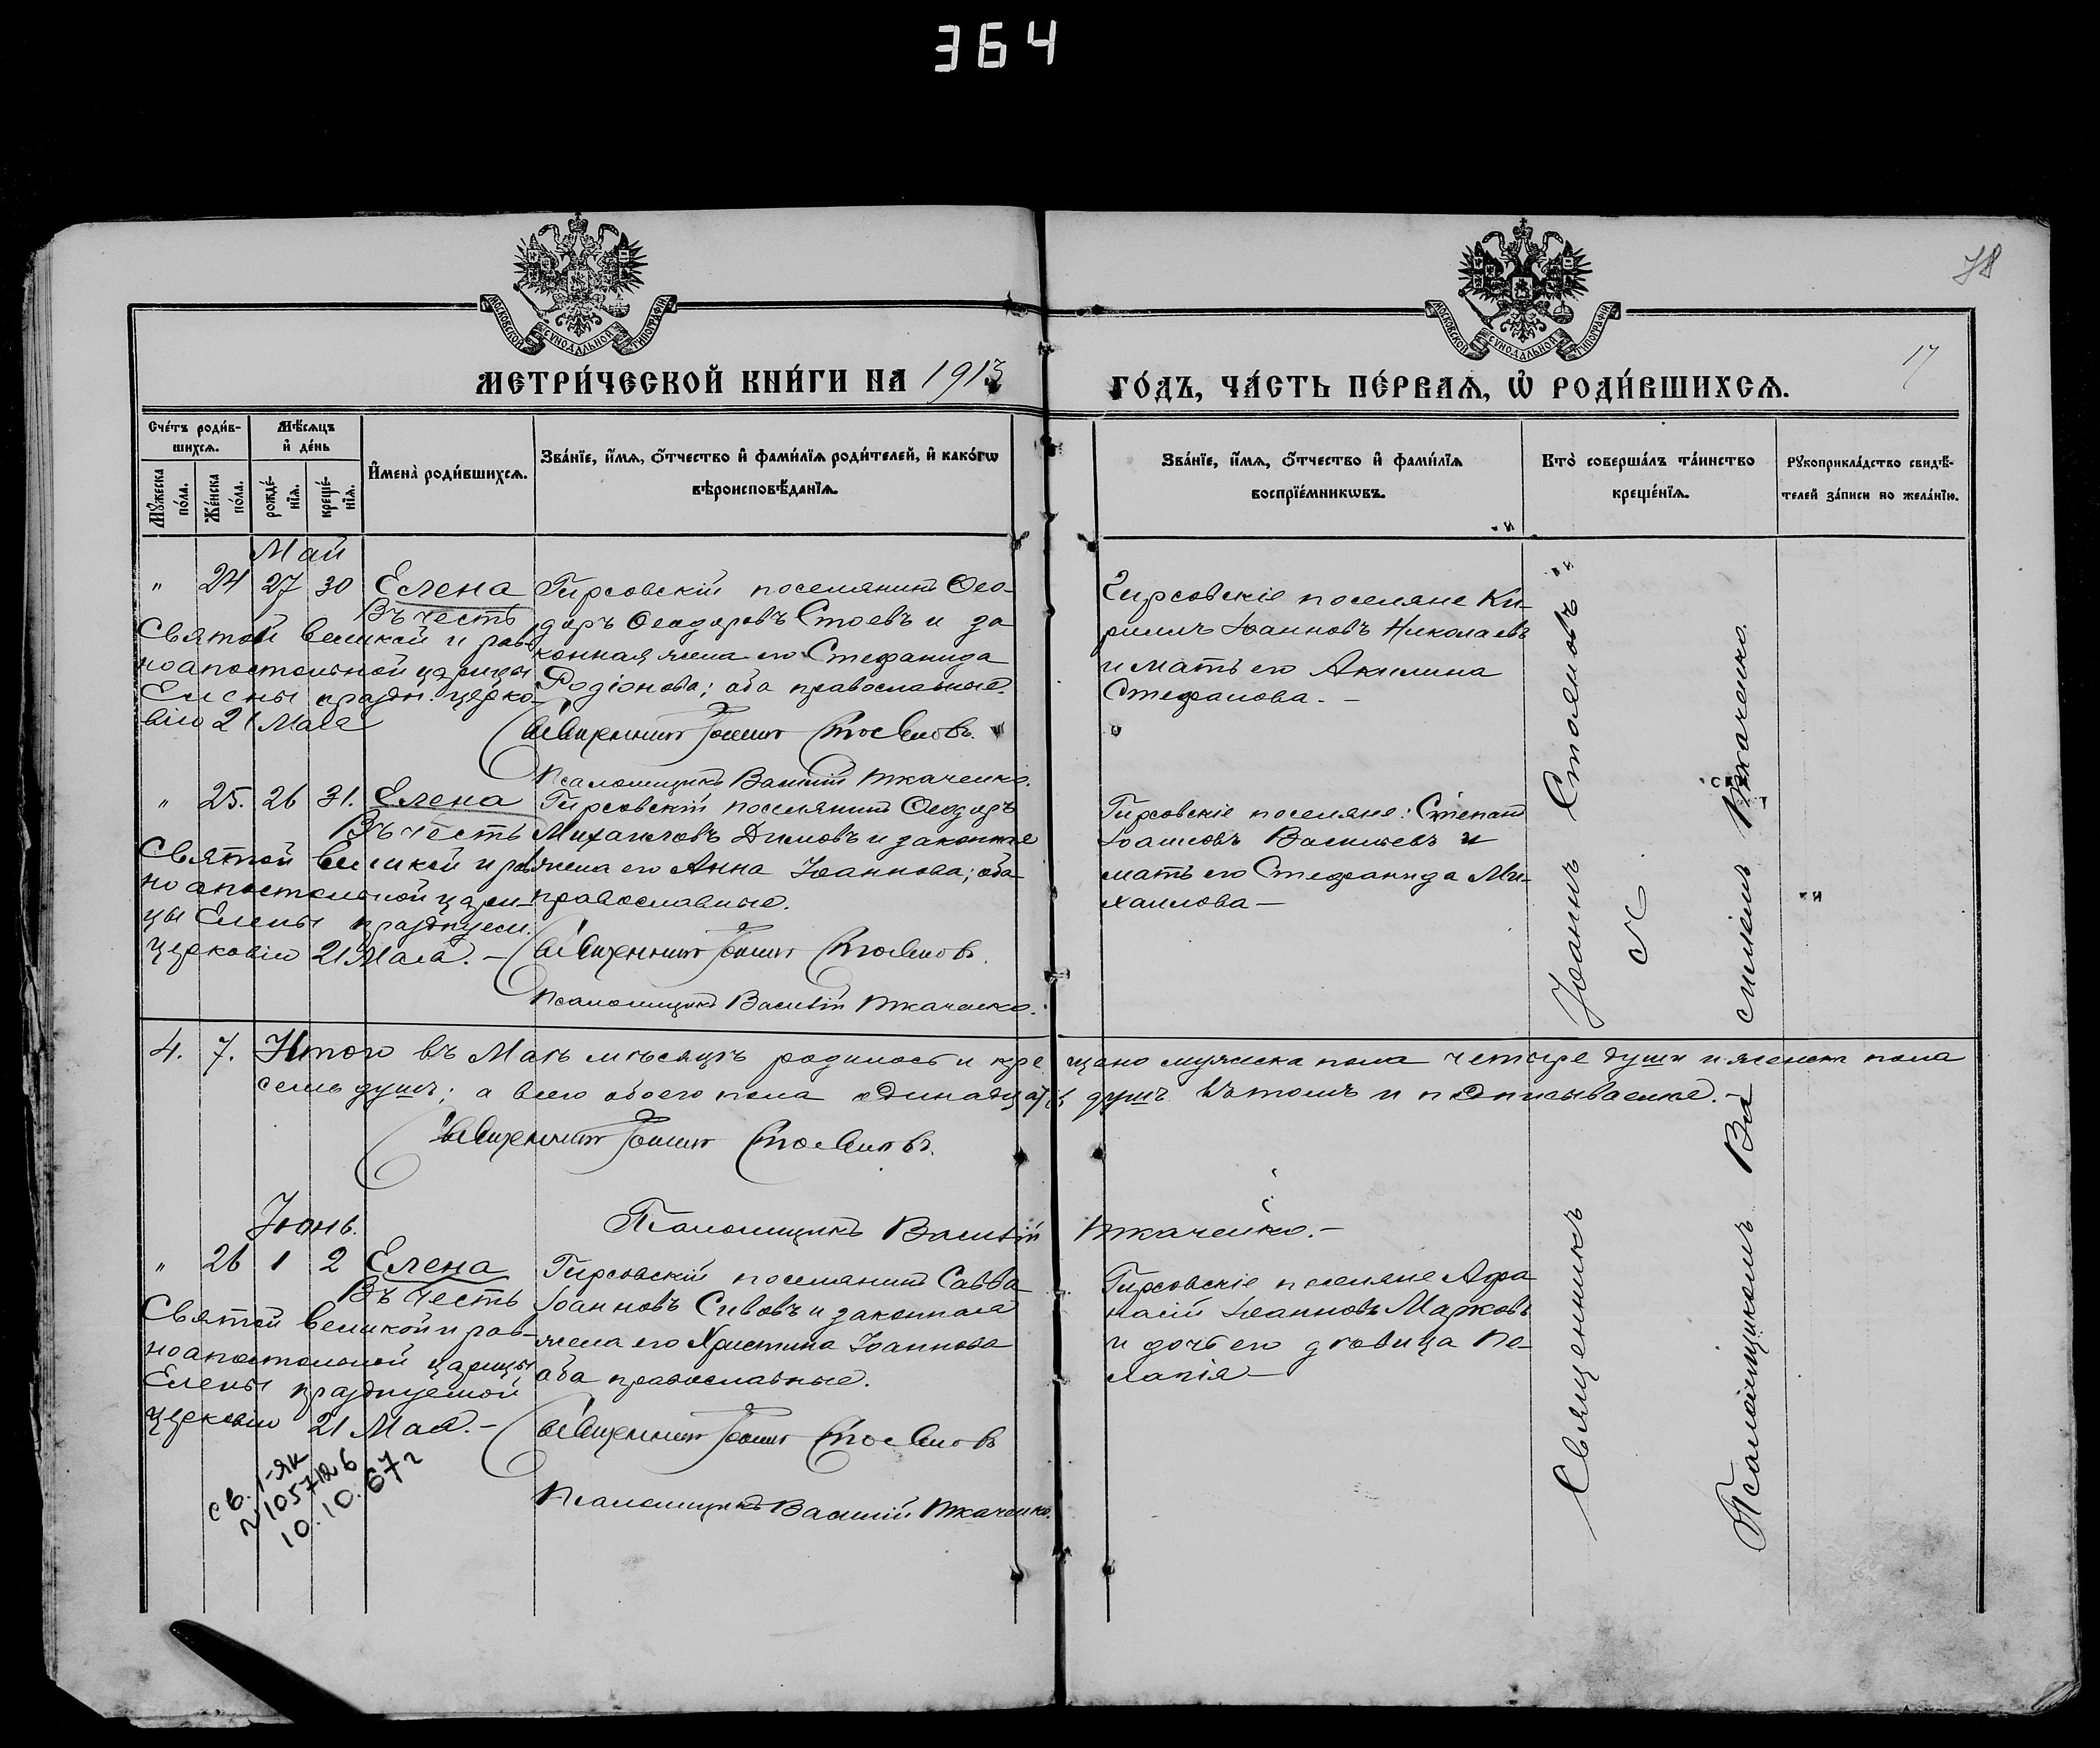 364
78
17
МОСКОВСКОЙ СѴНОДАЛЬНОЙ ТИПОГРАФІИ
МОСКОВСКОЙ СѴНОДАЛЬНОЙ ТИПОГРАФІИ
МЕТРИ́ЧЕСКОЙ КНИ́ГИ НА 1913
ГО́ДЪ, ЧА́СТЬ ПЕ́РВАѦ, Ѽ РОДИ́ВШИХСѦ.
Сче́тъ роди́в-
шихсѧ.
Мꙋ́жеска по́ла.
Же́нска по́ла.
Мѣ́сяцъ
и҆ де́нь
рожде́-нїѧ.
креще́-нїѧ.
И҆мена̀ роди́вшихсѧ.
Зва́нїе, и҆́мѧ, ѻ҆́тчество и҆ фами́лїѧ роди́телей, и҆ како́гѡ
вѣроисповѣ́данїѧ.
Зва́нїе, и҆́мѧ, ѻ҆́тчество и҆ фами́лїѧ
воспрїе́мникѡвъ.
Кто̀ соверша́лъ та́инство
креще́нїѧ.
Рꙋкоприкла́дство свидѣ́-
телей за́писи по жела́нїю.
Май
" 24 27 30 Елена
Въ честь
Святой великой и рав
ноапостольной царицы
Елены праздн. церко-
вію 21 Мая
Гирсовскій поселянинъ Ѳео-
доръ Ѳеодоровъ Стоевъ и за
конная жена его Стефанида
Родіонова; оба православные.
Священникъ Іоаннъ Стояновъ.
Псаломщикъ Василій Ткаченко.
Гирсовскіе поселяне Ки-
риллъ Іоанновъ Николаевъ
и мать его Акилина
Стефанова. –
" 25. 26 31. Елена
Въ честь
Святой великой и рав
ноапостольной цари-
цы Елены празднуем.
церковію 21 Мая. –
Гирсовскій поселянинъ Ѳеодоръ
Михаиловъ Димовъ и законная
жена его Анна Іоаннова; оба
православные.
Священникъ Іоаннъ Стояновъ.
Псаломщикъ Василій Ткаченко.
Гирсовскіе поселяне: Степанъ
Іоанновъ Васильевъ и
мать его Стефанида Ми-
хаилова –
4. 7. Итого въ Маѣ мѣсяцѣ родилось и кре щено мужеска пола четыре души и женска пола
семь душъ; а всего обоего пола одинадцать душъ въ томъ и подписываемся. –
Священникъ Іоаннъ Стояновъ.
Псаломщикъ Василій Ткаченко. –
Іюнь.
" 26 1 2 Елена
Въ честь
Святой великой и рав-
ноапостольной царицы
Елены празднуемой
церковію 21 Мая. –
Гирсовскій поселянинъ Савва
Іоанновъ Сивовъ и законная
жена его Христина Іоаннова
оба православные.
Священникъ Іоаннъ Стояновъ
Псаломщикъ Василій Ткаченко.
Гирсовскіе поселяне Афа
насій Іоанновъ Марковъ
и дочь его дѣвица Пе-
лагія –
Священникъ Іоаннъ Стояновъ
с
Псаломщикомъ Ва силіемъ Ткаченко.
св. I-ЯК
10.10.67г